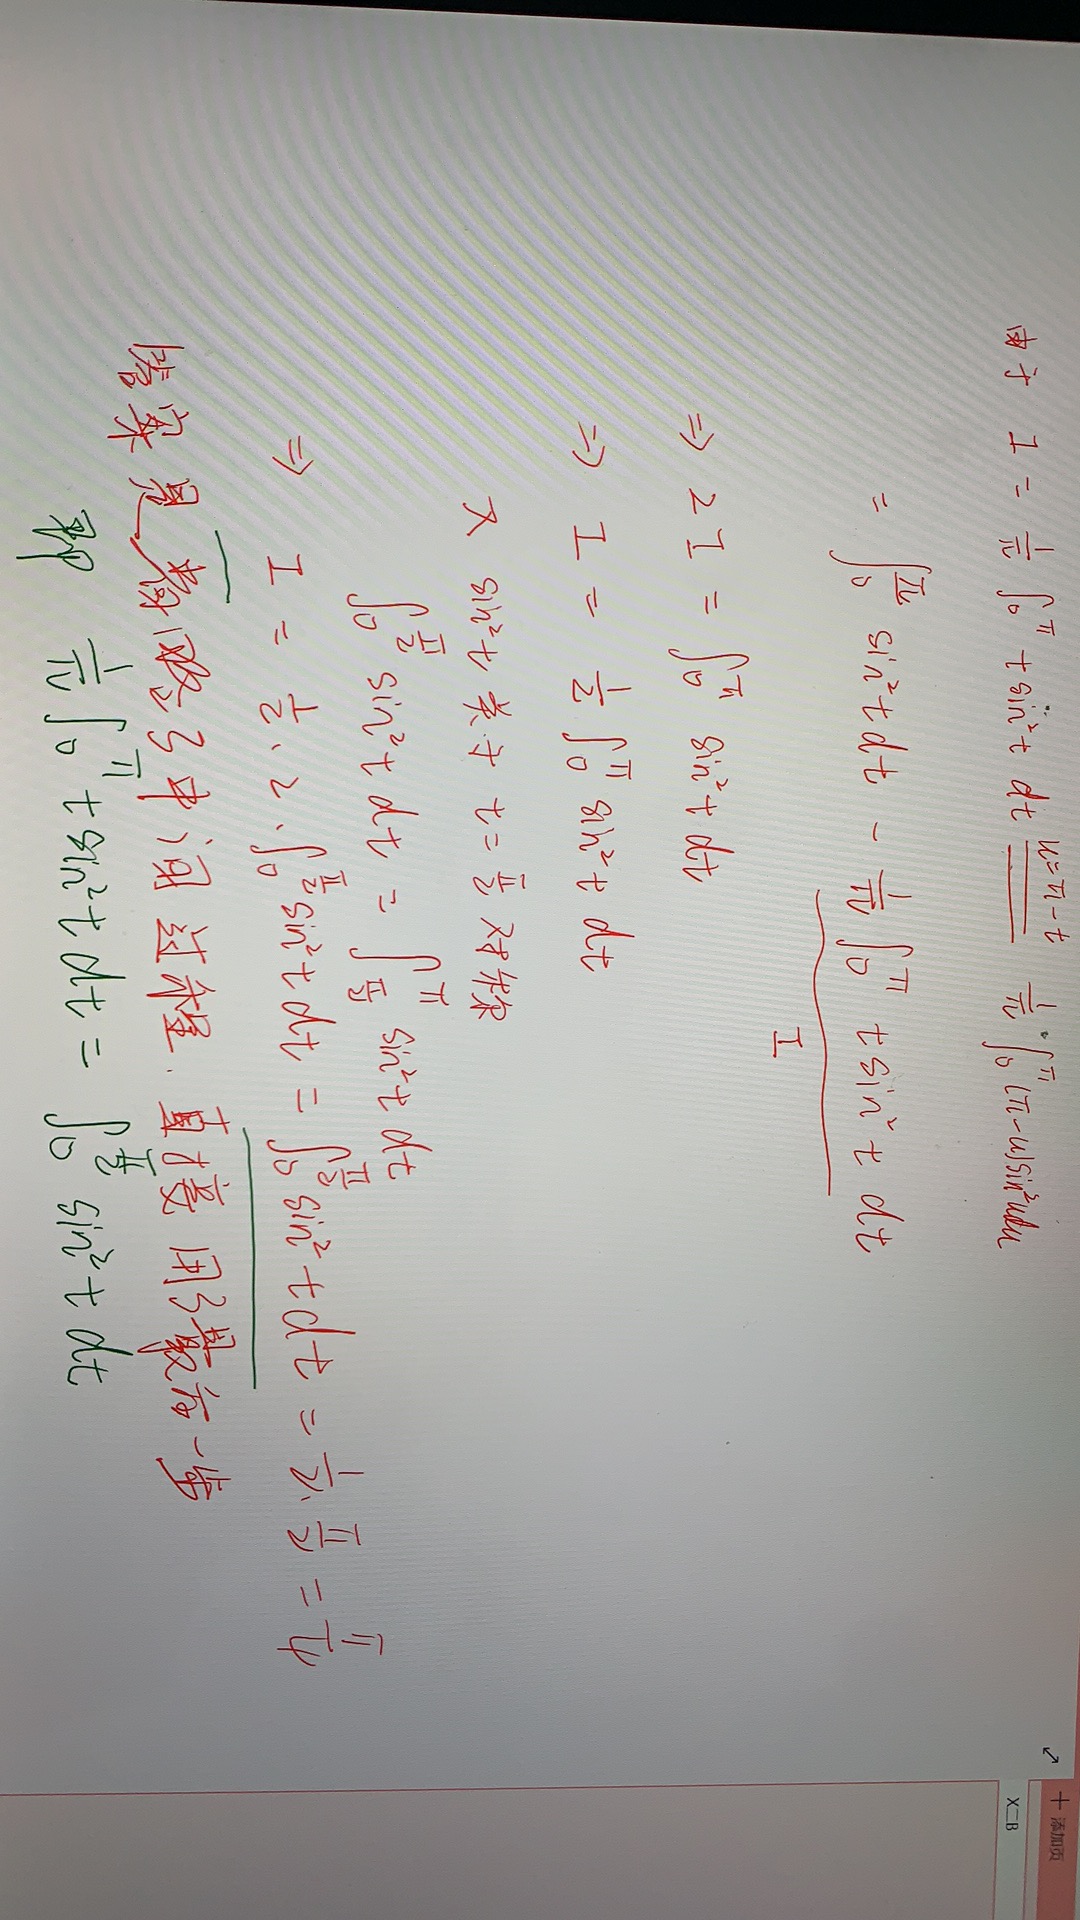 由于 I = 1/π ∫₀^π t sin²t dt =(u=π-t)= 1/π · ∫₀^π (π-u) sin²u du
= ∫₀^π sin²t dt - 1/π ∫₀^π t sin²t dt
I
⇒ 2I = ∫₀^π sin²t dt
⇒ I = 1/2 ∫₀^π sin²t dt
又 sin²t 关于 t = π/2 对称
∫₀^{π/2} sin²t dt = ∫_{π/2}^π sin²t dt
⇒ I = 1/2 · 2 · ∫₀^{π/2} sin²t dt = ∫₀^{π/2} sin²t dt = 1/2 · π/2 = π/4
答案是省略了中间过程. 直接用了最后一步
即 1/π ∫₀^π t sin²t dt = ∫₀^{π/2} sin²t dt
+ 添加页